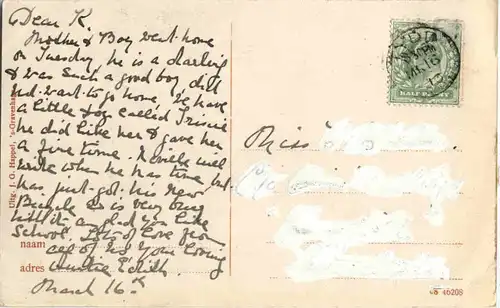 Dear K.
Mother & Boy went home
on Tuesday, he is a darling
& was such a good boy did
not want to go home. We have
a little dog called Trixie
he did like her & gave her
a fine time. Neville will
write when he has time but
has just got his new
Bicycle & is very busy
with it. am glad you like
School. Lots of love from
all of us Your loving
Auntie Edith.
March 16th
naam
adres
Uitg. J. G. Happel, 's-Gravenhage.
HALF
Miss
46208